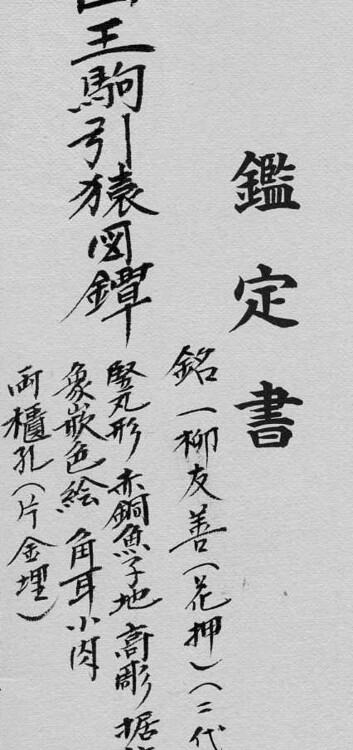 鑑定書
銘 一柳友善(花押)(二代
竪丸形 赤銅魚子地 高彫 据
象嵌色絵 角耳小肉
両櫃孔(片金埋)
王駒引猿図鐔